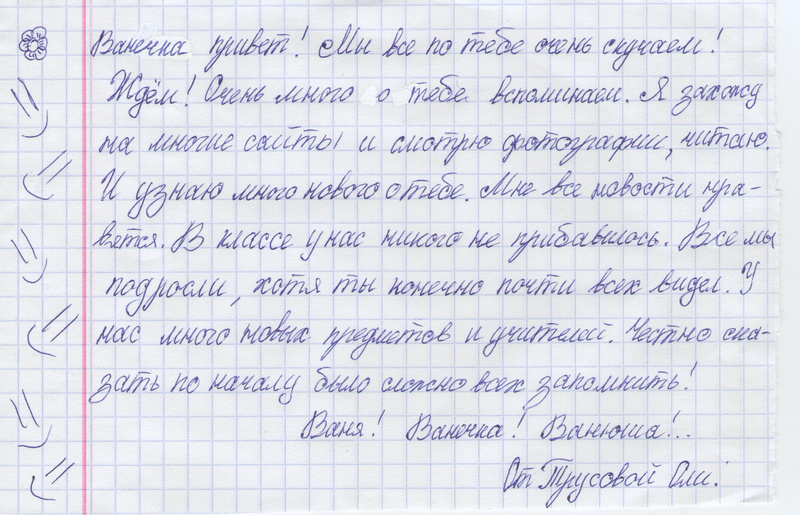 Ванечка привет! Мы все по тебе очень скучаем!
Ждём! Очень много о тебе вспоминаем. Я захожу
на многие сайты и смотрю фотографии, читаю.
И узнаю много нового о тебе. Мне все новости нра-
вятся. В классе у нас никого не прибавилось. Все мы
подросли, хотя ты конечно почти всех видел. У
нас много новых предметов и учителей. Честно ска-
зать по началу было сложно всех запомнить!
Ваня! Ванечка! Ванюша!..
От Трусовой Оли!